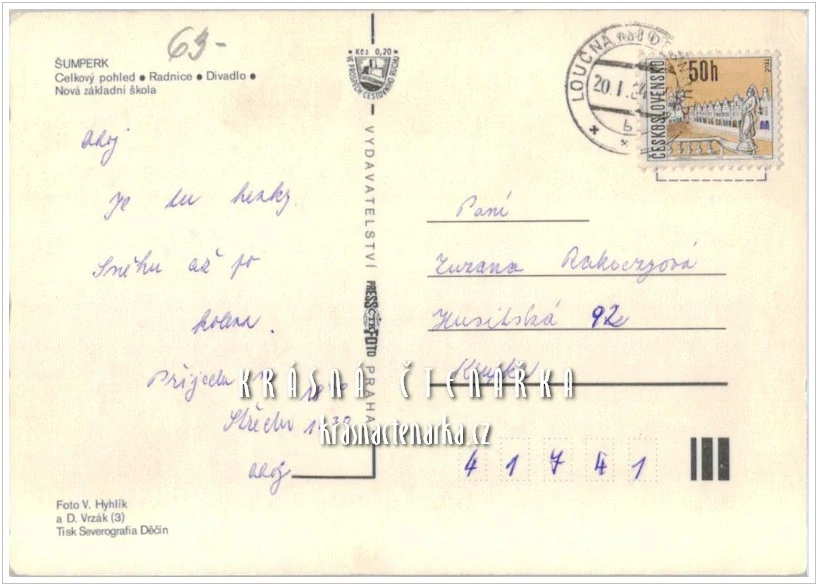 63-
ŠUMPERK
Celkový pohled • Radnice • Divadlo •
Nová základní škola
Kčs 0,20
VE PROSPĚCH CESTOVNÍHO RUCHU
LOUČNÁ NAD DES
20.1.84
b
ČESKOSLOVENSKO
50h
TELČ
Ahoj
Je tu hezky
Sněhu až po
kolena.
Přijedu
Středu
Ahoj
VYDAVATELSTVÍ PRESSFOTO PRAHA
ČTK
Paní
Zuzana Rakoczyová
Husitská 92
Krupka
41741
KRÁSNÁ ČTENÁŘKA
krasnactenarka.cz
Foto V. Hyhlík
a D. Vrzák (3)
Tisk Severografia Děčín